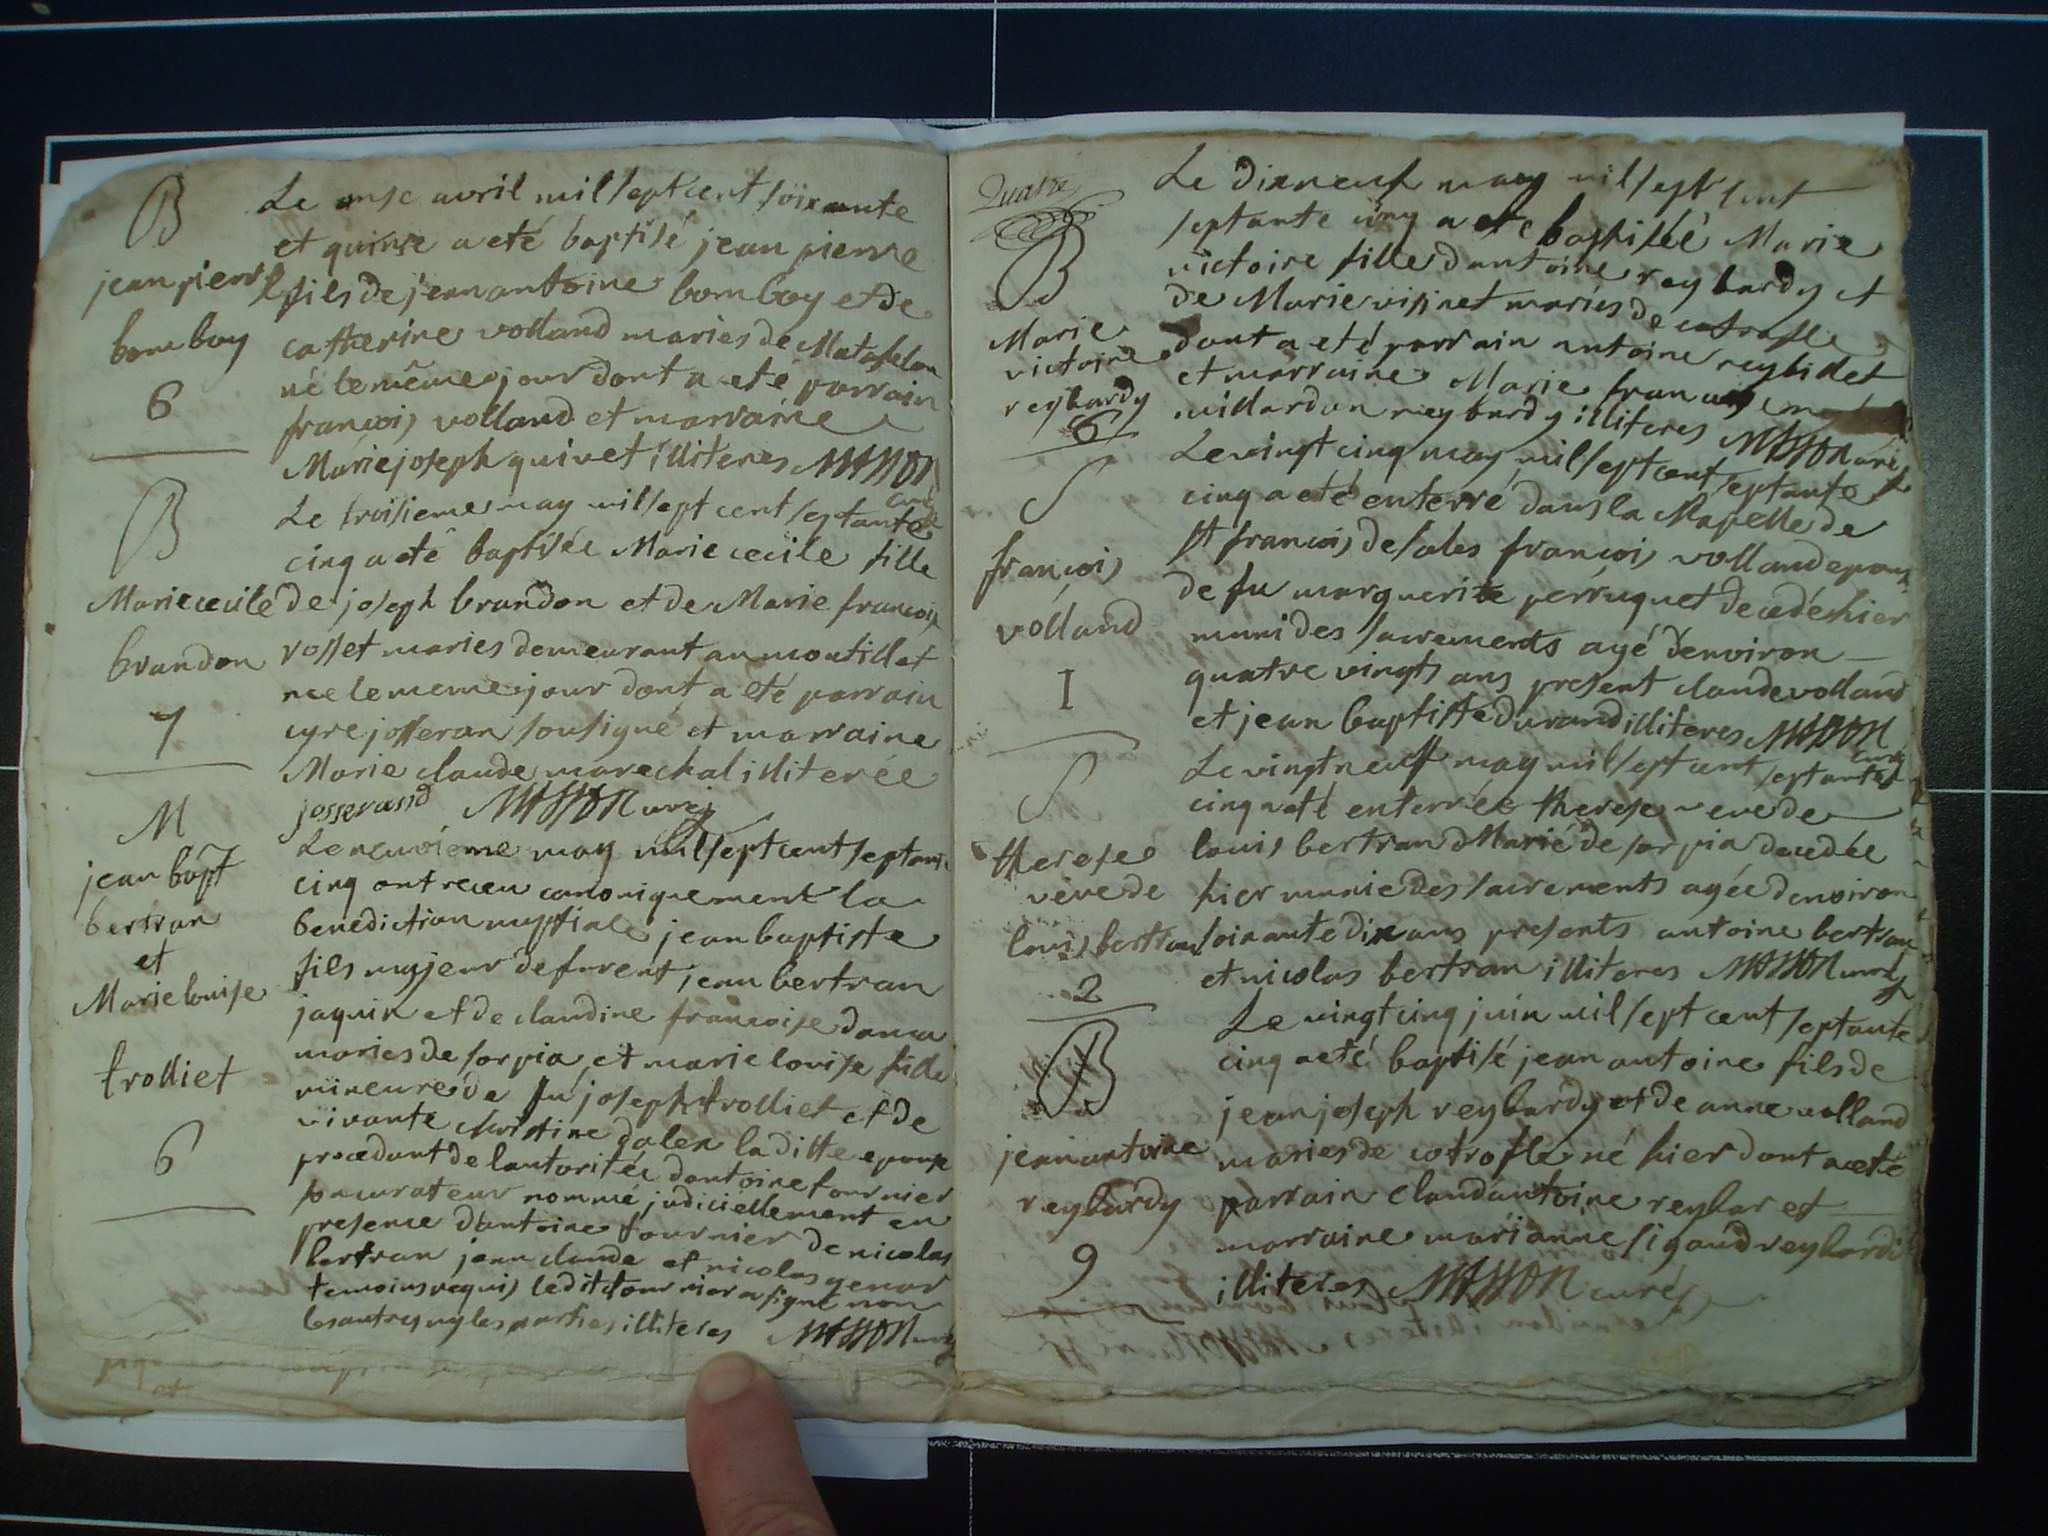 B
jean pierre
bomboy
6
Le onse avril mil sept cent soixante
et quinse a eté baptisé jean pierre
fils de jean antoine bomboy et de
catherine volland maries de Matafelon
né le même jour dont a eté parrain
françois volland et marraine
Marie joseph quivet illiteres MASSON
curé
B
Marie cecile
brandon
7
Le troisieme may mil sept cent septante
cinq a eté baptisée Marie cecile fille
de joseph brandon et de Marie françoise
rosset maries demeurant au montillet
nee le meme jour dont a eté parrain
cyre josseran sousigné et marraine
Marie claude marechal illiterée
josserand MASSON curé
M
jean bapt
bertran
et
Marie louise
trolliet
6
Le neuvieme may mil sept cent septante
cinq ont recu canoniquement la
benediction nuptiale jean baptiste
fils majeur de furent jean bertran
jaquin et de claudine françoise danca
maries de sorpia et marie louise fille
mineure de fu joseph trolliet et de
vivante christine dalen la ditte epouse
procedant de lautoritée dantoine fournier
procurateur nommé judiciellement en
presence dantoine fournier de nicolas
bertran jean claude et nicolas genor
temoins requis ledit fournier a signé non
les autres ny les parties illiteres MASSON curé
Quatre
B
Marie
victoire
reybardy
6
Le dixneuf may mil sept cent
septante cinq a ete baptisée Marie
victoire fille dantoine reybardy et
de Marie visinet mariés de cotrofle
dont a eté parrain antoine reybidet
et marraine Marie françoise
villardan reybardy illiteres MASSON curé
S
françois
volland
1
Le vingt cinq may mil sept cent septante
cinq a eté enterré dans la chapelle de
st françois de sales françois volland epoux
de fu marguerite perruquet decedé hier
muni des sacrements agé d'environ
quatre vingts ans present claude volland
et jean baptiste durand illiteres MASSON
curé
S
therese
veve de
louis bertran
2
Le vingt neuf may mil sept cent septante
cinq a eté enterrée therese veve de
louis bertran Marié de sorpia decedée
hier munie des sacrements agée denviron
soixante dix ans presents antoine bertran
et nicolas bertran illiteres MASSON curé
B
jean antoine
reybardy
9
Le vingt cinq juin mil sept cent septante
cinq a eté baptisé jean antoine fils de
jean joseph reybardy et de anne volland
maries de cotrofle né hier dont a eté
parrain claud antoine reybar et
marraine marianne sigaud reybardi
illiteres MASSON curé